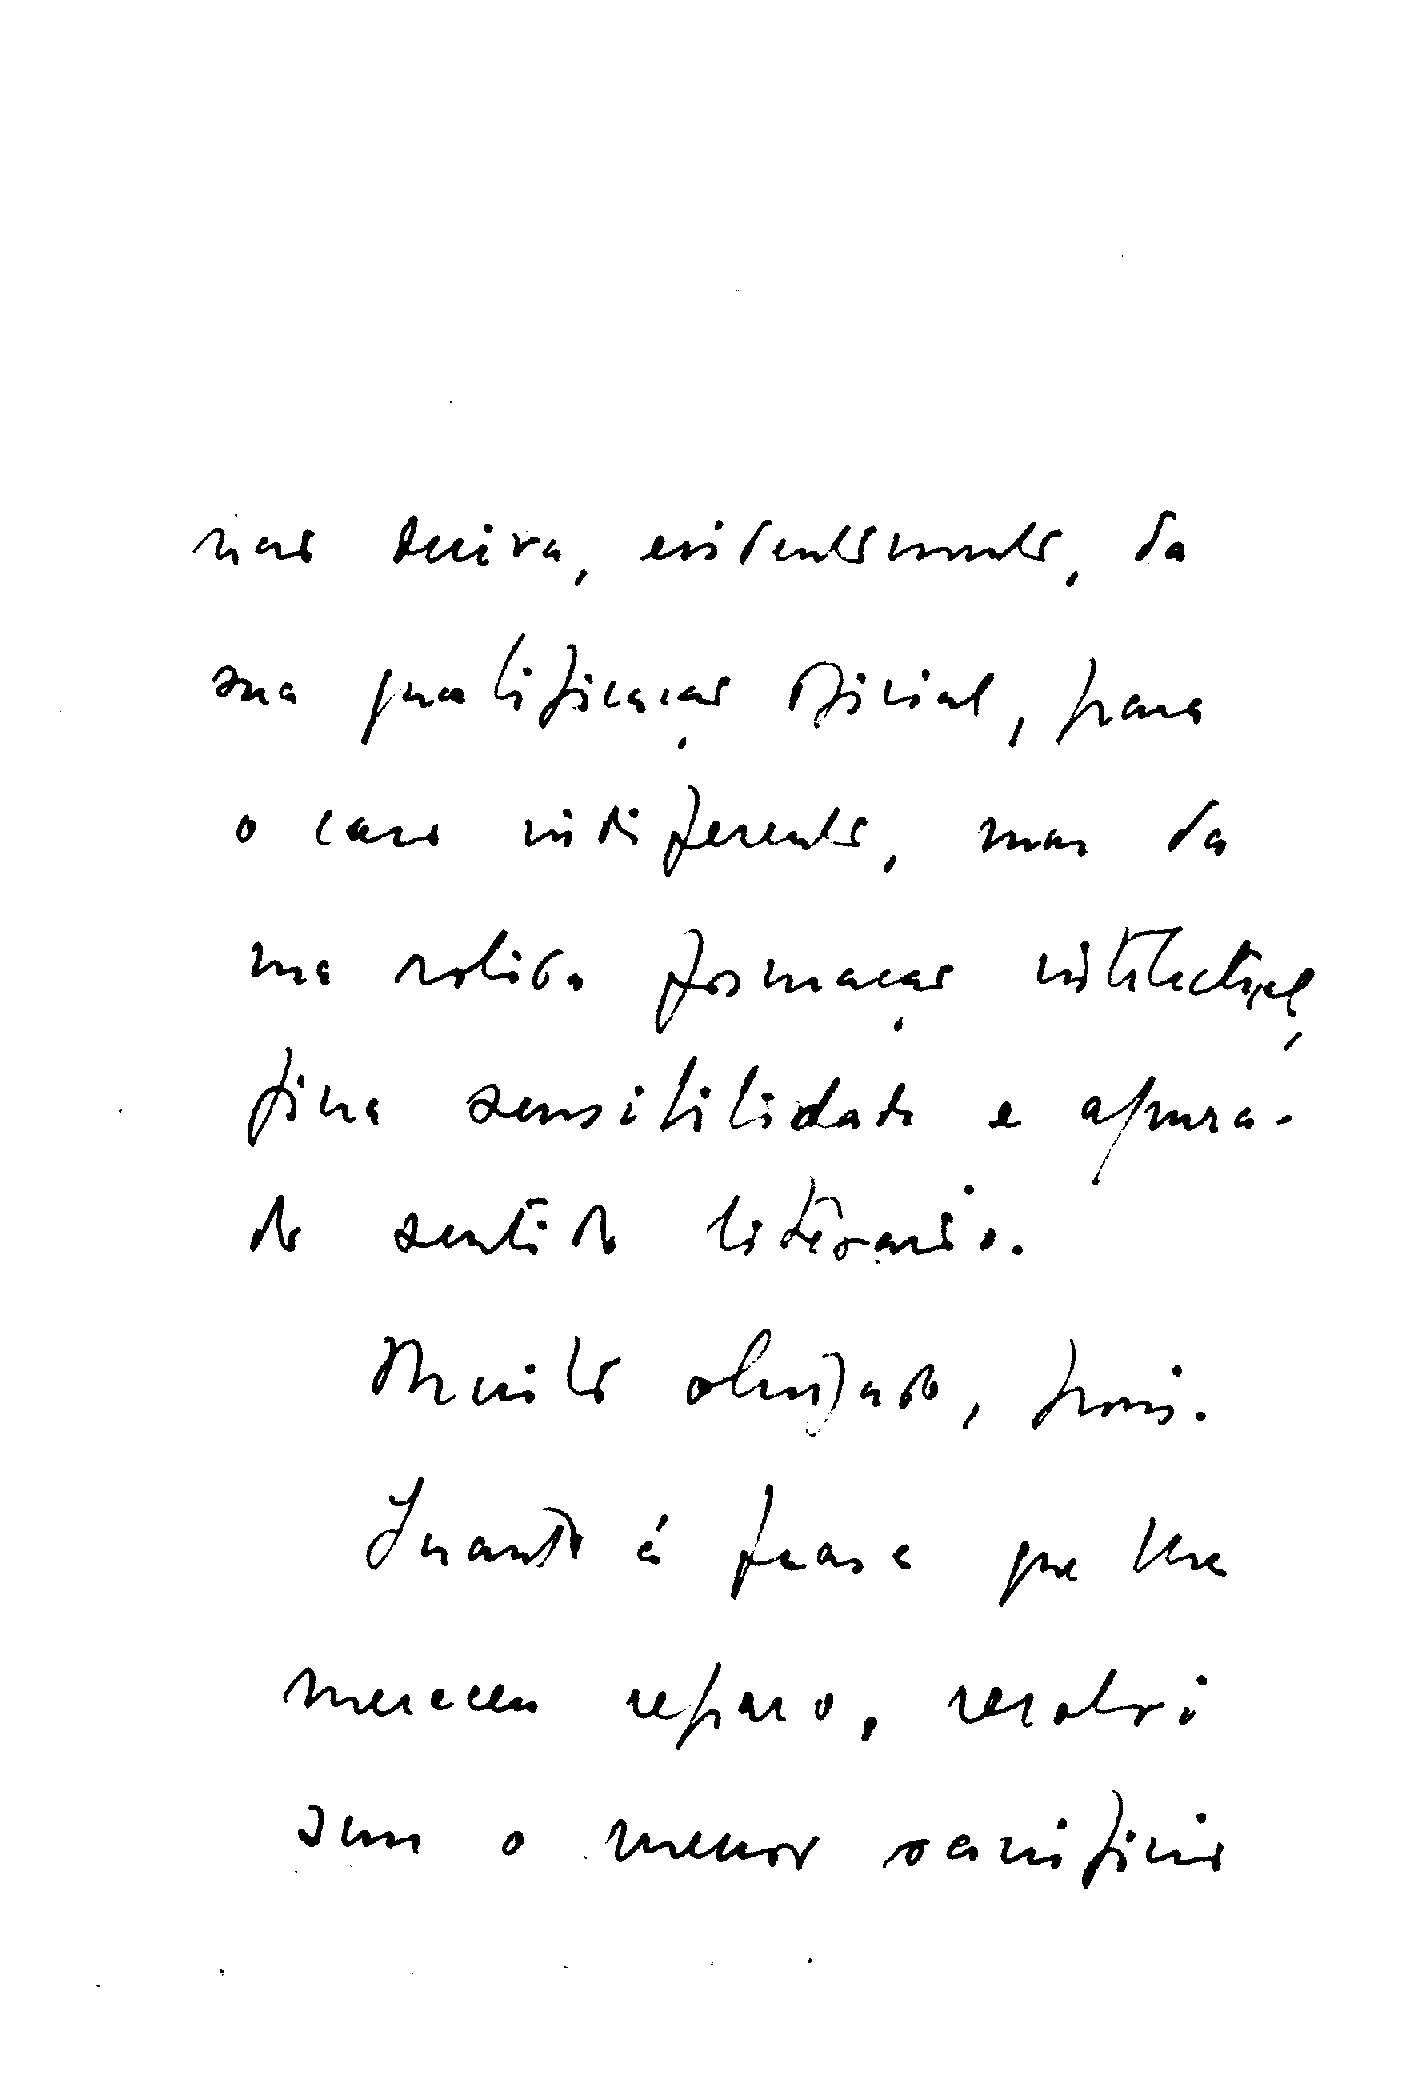 não deriva, evidentemente, da
sua qualificação oficial, para
o caso indiferente, mas da
sua sólida formação intelectual,
fina sensibilidade e apura-
do sentido literário.
Muito obrigado, pois.
Quanto à frase que lhe
mereceu reparo, resolvi
sem o menor sacrifício